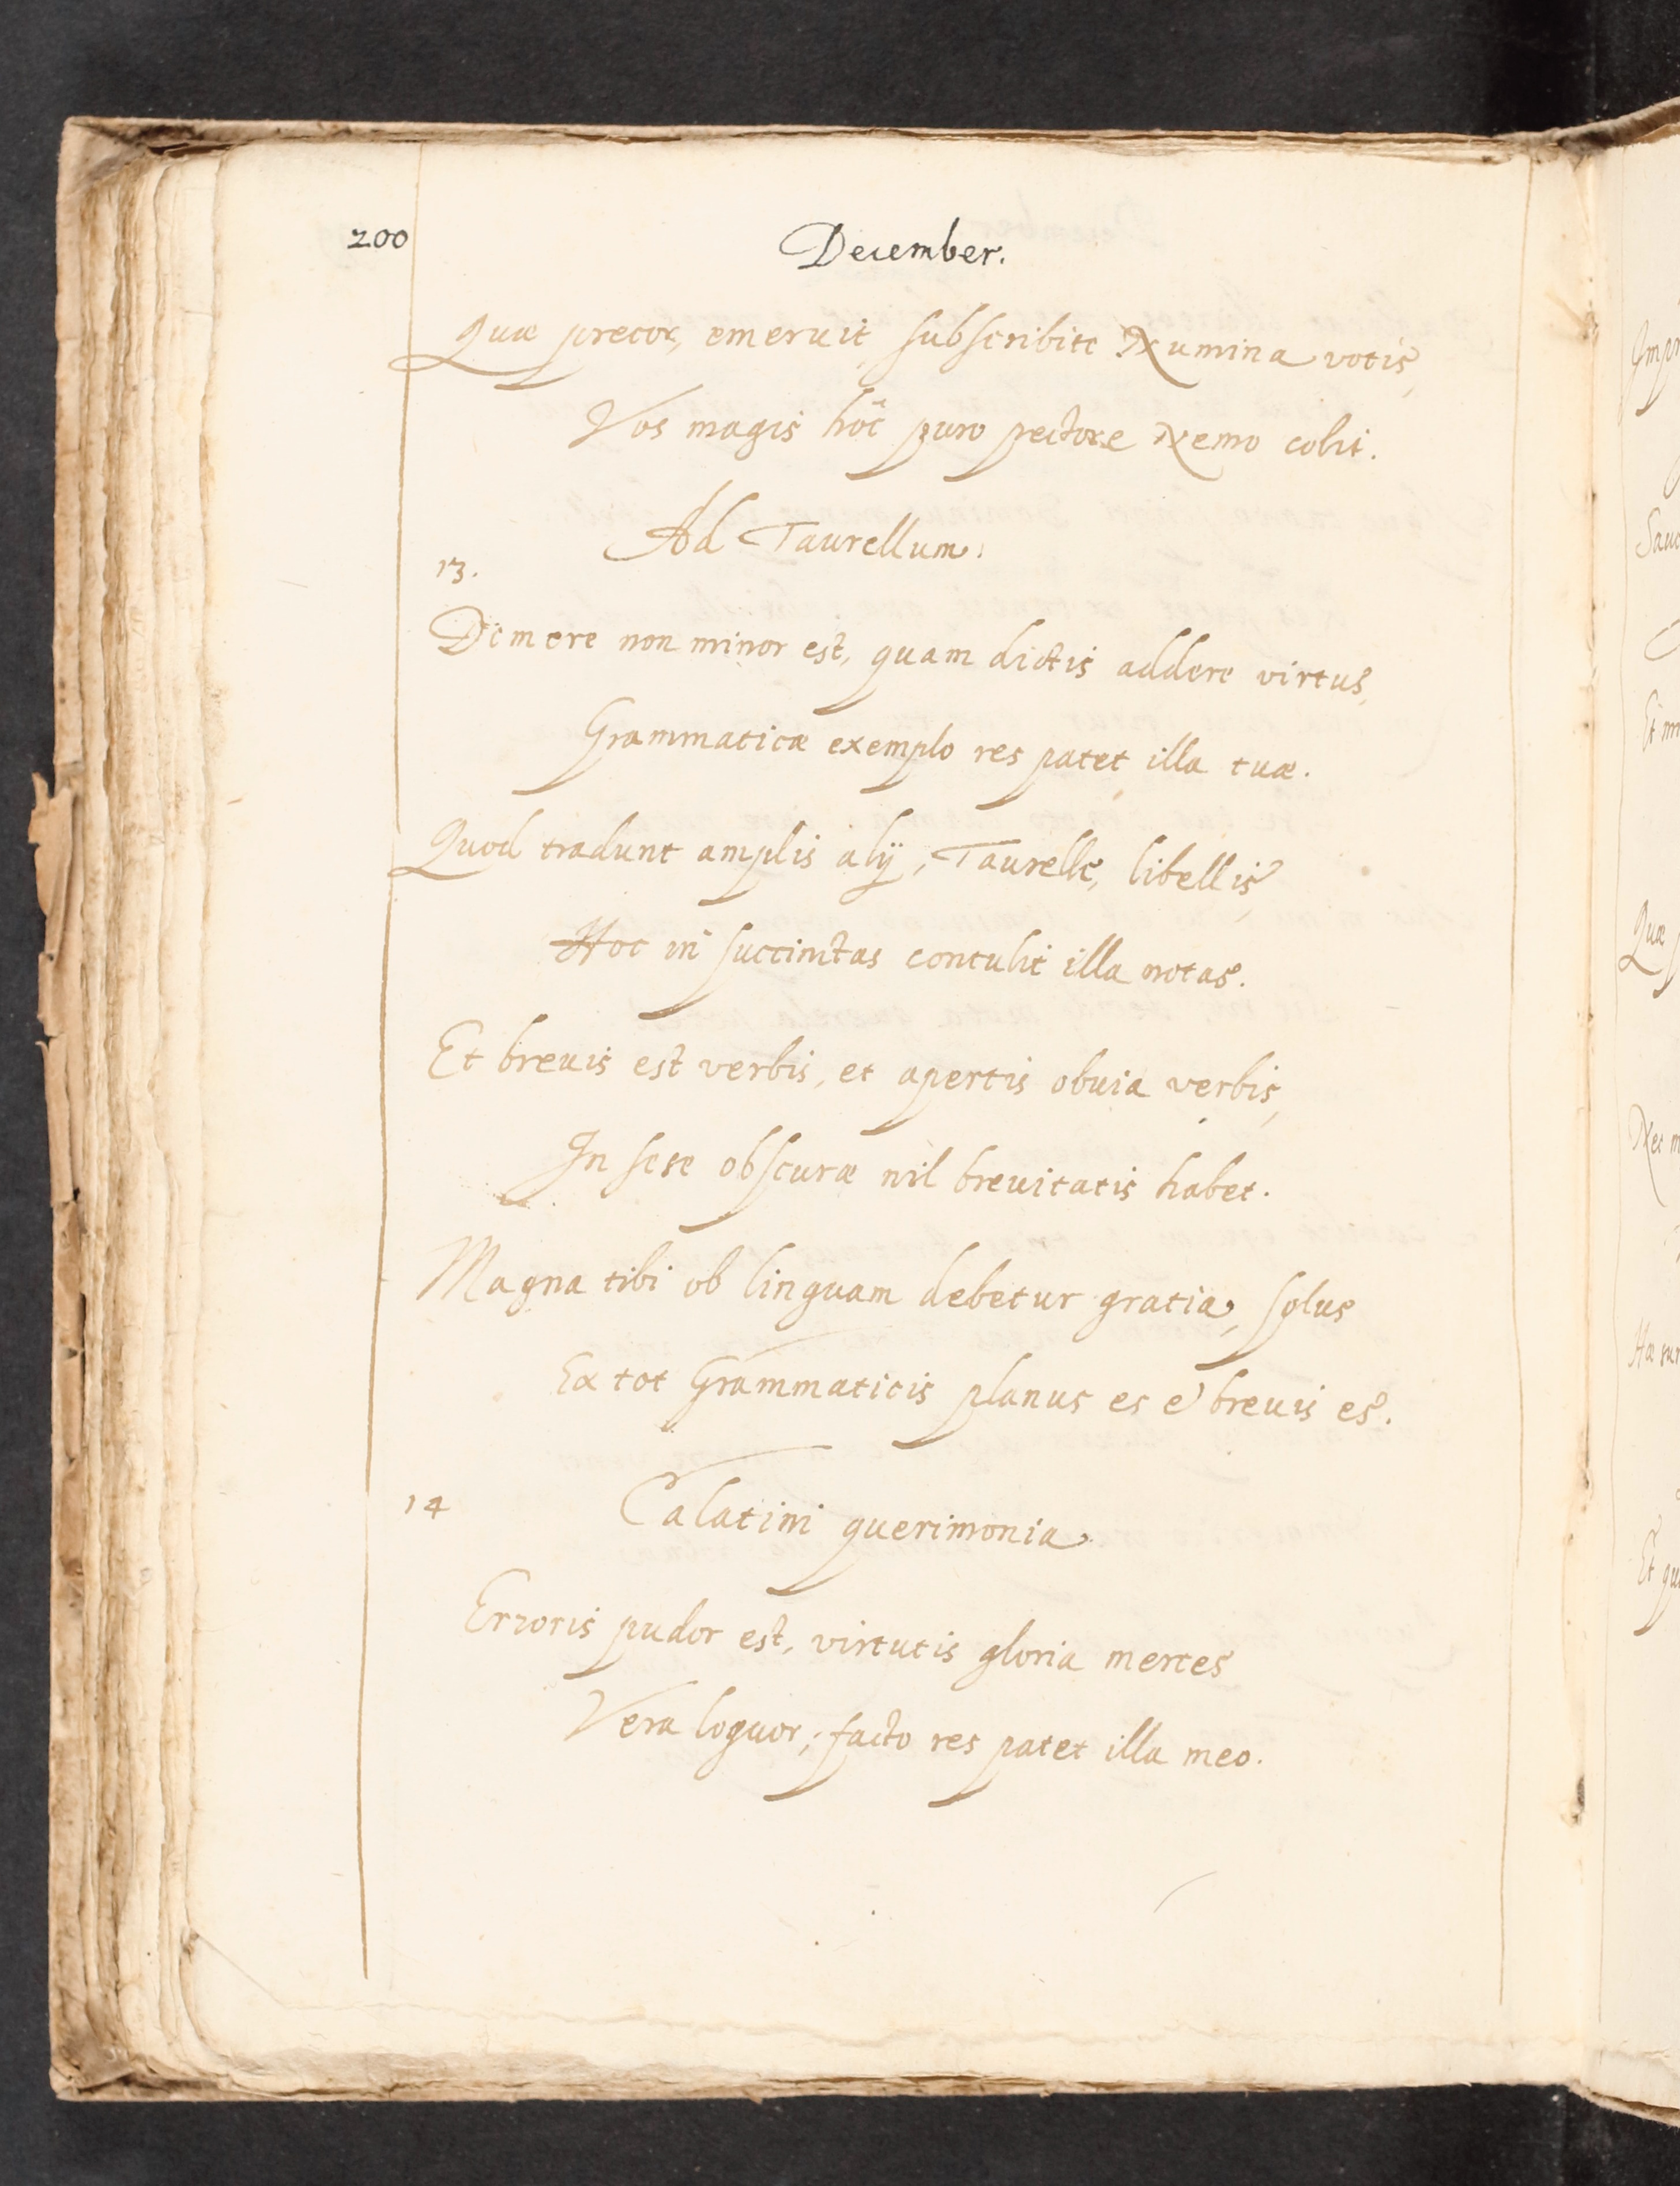 200
December.
Quæ precor, emeruit, subscribite Numina votis,
Vos magis hôc puro pectore Nemo colit.
Ad Taurellum.
13.
Demere non minor est, quam dictis addere virtus,
Grammaticæ exemplo res patet illa tuæ.
Quod tradunt amplis alÿ, Taurelle, libellis
Hoc in succinctas contulit illa notas.
Et breuis est verbis, et apertis obuia verbis,
In sese obscuræ nil breuitatis habet.
Magna tibi ob linguam debetur gratia, solus
Ex tot Grammaticis planus es & breuis es.
14
Calatini querimonia.
Erroris pudor est, virtutis gloria merces
Vera loquor; facto res patet illa meo.